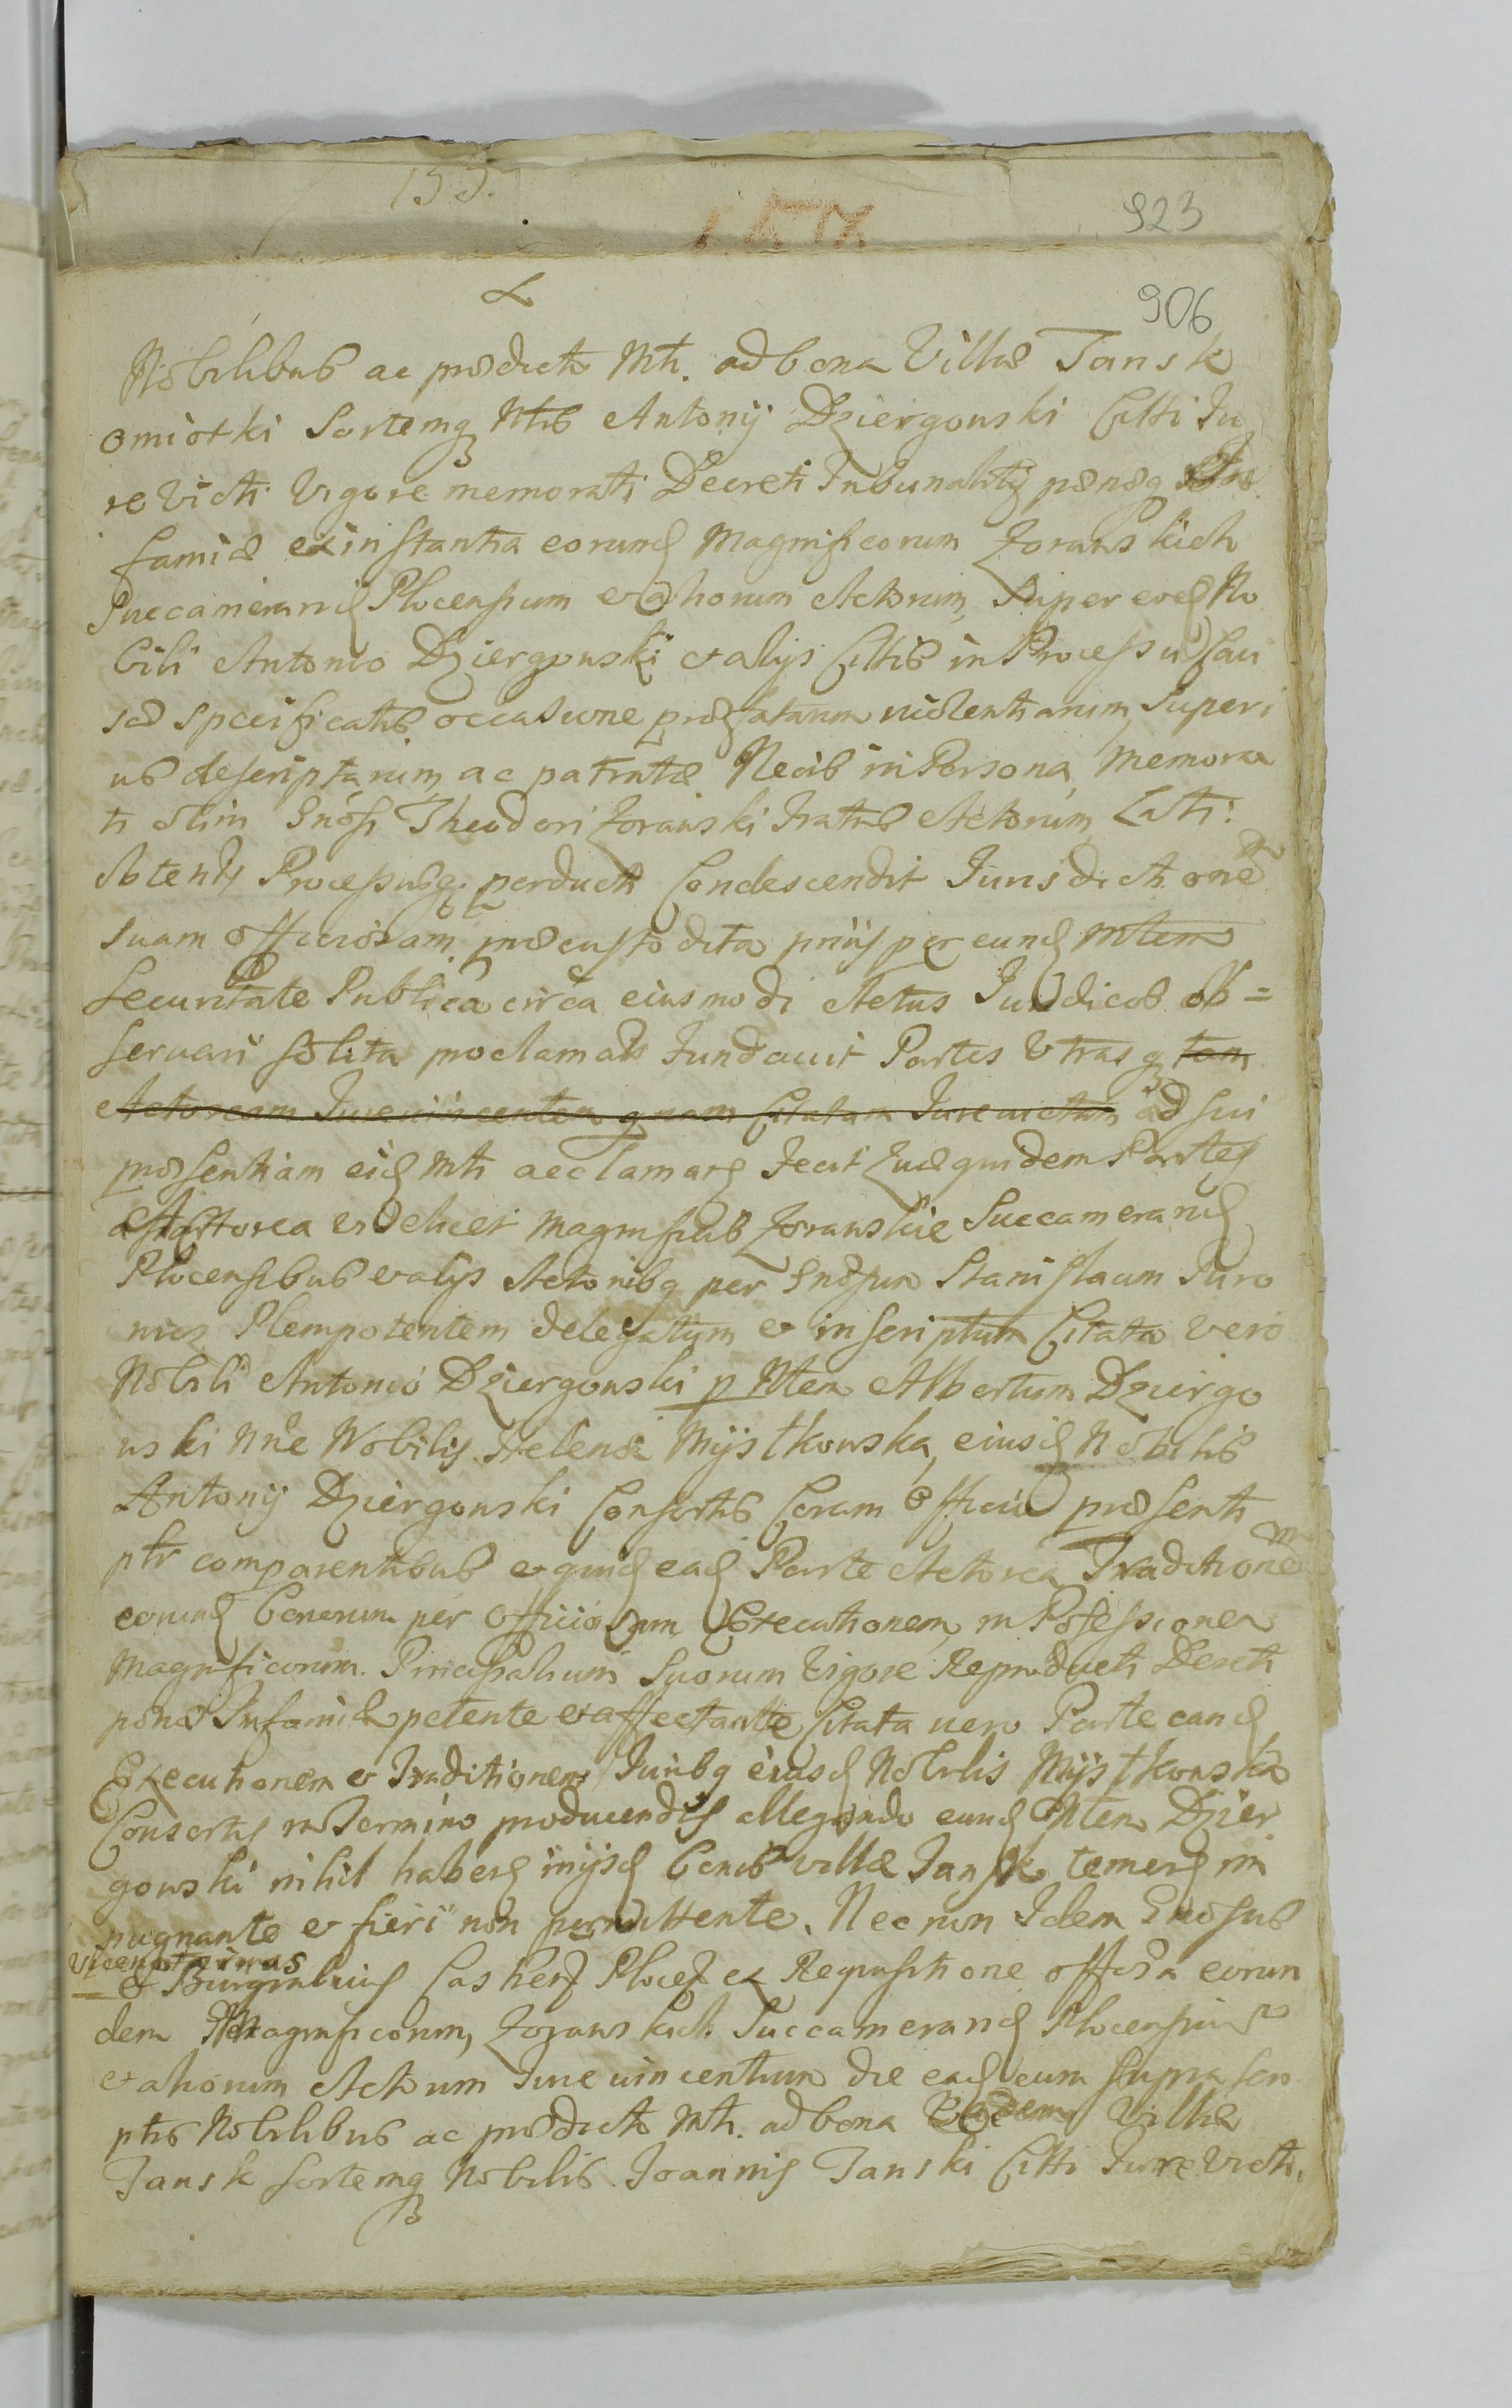 155.
923
906
Nobilibus ac prædicto Mti. ad bona Villæ Jansk
omiotki Sortemq Ntis Antonij Dziergowski Citti Ju
re Victi Vigore memorati Decreti Tribunalitij pœnæq In
famiæ ex instantia eorund Magnificorum Zorawskich
Succamerarid Plocensium et aliorum Actorum, Super eod No
bili Antonio Dziergowski et alijs Cittis in Processu Cau
sæ specificatis occasione præfatarum violentiarum Superi
us descriptarum, ac patratæ Necis in Persona, memora
ti olim Gnosi Theodori Zorawski Fratris Actorum Lati:
obtentis Processusq. perducti Condescendit Jurisdictionem
suam officiosam præcustodita prius per eund Mtem
Securitate Publica circa eiusmodi Actus Juridicos ob=
servari solita proclamata Fundavit Partes Utrasq tam
Actoream Jurevincentem quam Citatam Jurevictam ad sui
præsentiam eid Mti acclamare Fecit Quæ quidem Partes
Actorea videlicet Magnificis Zorawskie Succamerarid
Plocensibus et alijs Actoribq per Gnosum Stanislaum Turo
wicz Plenipotentem delegatum et inscriptum Citata vero
Nobili Antonio Dziergowski p Ntem Albertum Dziergo
wski nne Nobilis Helenæ Mystkowska, eiusd Nobilis
Antonij Dziergowski Consortis Coram Officio præsenti
ptr comparentibus et quid ead Parte Actorea Traditionem
eorund Bonorum per Officiosam Executionem in Possessionem
Magnificorum Principalium Suorum Vigore Reproducti Dereti
pœnæ Infamiæ petente et affectante Citata vero Parte eand
Executionem et Traditionem Juribq eiusd Nobilis Mystkowska
Consortis in Termino producendis allegando eund Ntem Dzier
gowski nihil habere in ijsd bonis villæ Jansk temere im
pugnante et fieri non permittente. Necnon Idem Gnosus
Vicenotarius
et Burgrabius Castren Plocen ex Requisitione officiosa eorun
dem Magnificorum, Zorawskich Succamerarid Plocensium
et aliorum Actorum Jurevincentium die ead cum supra scri
ptis Nobilibus ac prædicto Mti. ad bona Eadem Villæ
Jansk sortemq Nobilis Joannis Janski Citti Jure Victi,